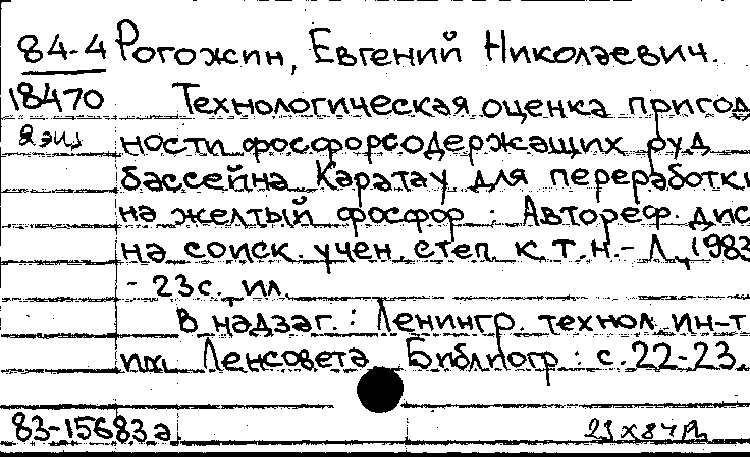 84-4 Рогожин, Евгений Николаевич.
18470 Технологическая оценка пригод
2 экз ности фосфорсодержащих руд
бассейна Каратау для переработки
на желтый фосфор : Автореф. дис
на соиск. учен. степ. к.т.н. - Л., 1983
- 23 с., ил.
В надзаг.: Ленингр. технол. ин-т
им. Ленсовета. Библиогр.: с. 22-23.
83-15683а